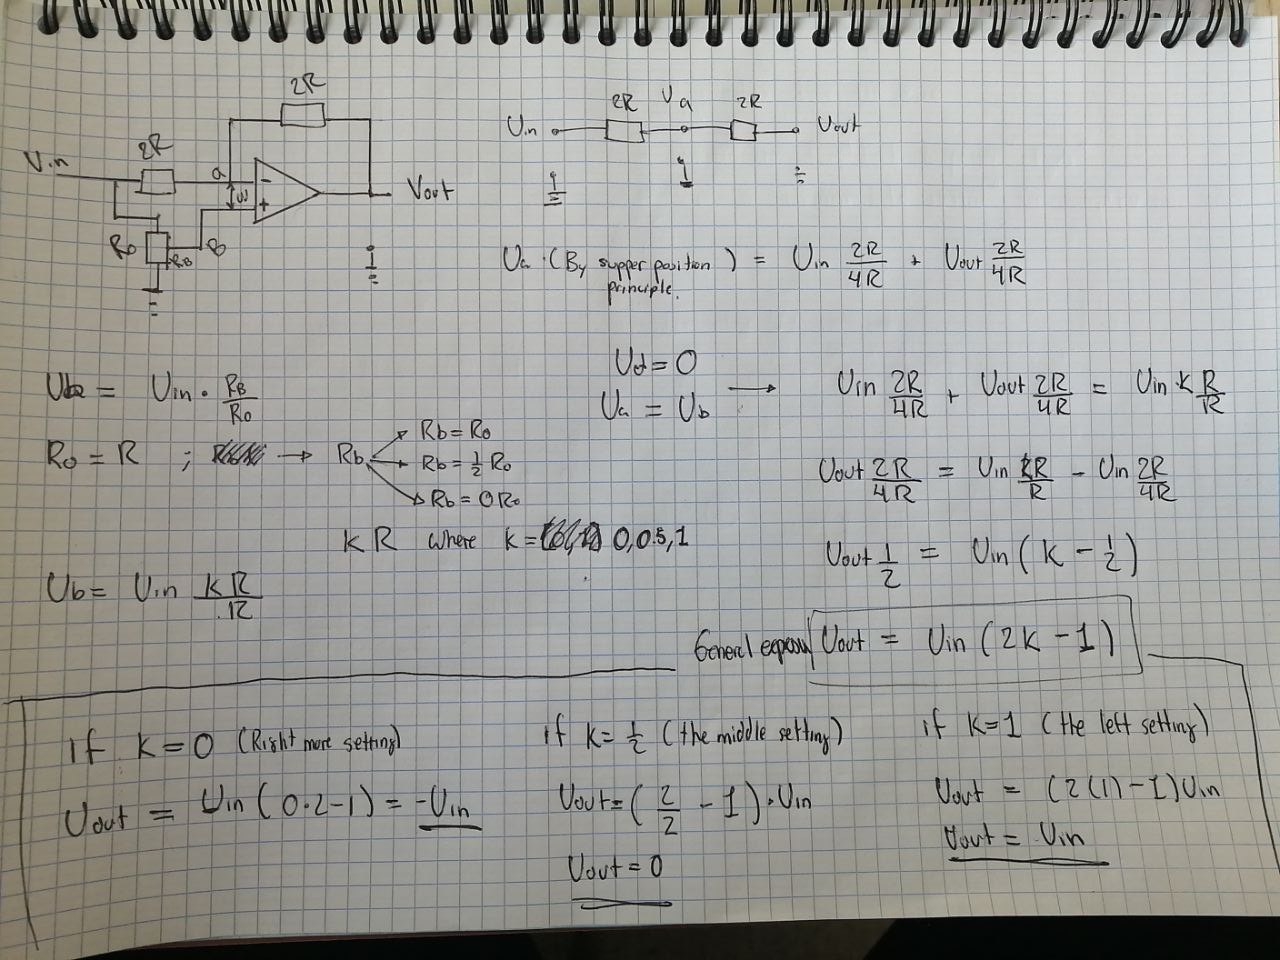 2R
2R
Vin
a
-
+
Vout
R0
2R
Ua
2R
Uin
Vout
(By supper position
principle.
) = Uin 2R/4R + Uout 2R/4R
= Uin · RB/R0
R0 = R ; → Rb
Rb = R0
Rb = 1/2 R0
Rb = 0R0
kR where k= 0,0.5,1
Ub = Uin kR/R
Ud = 0
Ua = Ub →
Uin 2R/4R + Uout 2R/4R = Uin k R/R
Uout 2R/4R = Uin kR/R - Uin 2R/4R
Uout 1/2 = Uin (k - 1/2)
General Uout = Uin (2k - 1)
if k=0 (Right more setting)
Uout = Uin (0·2-1) = -Uin
if k= 1/2 (the middle setting)
Uout = (2/2 - 1)·Uin
Uout = 0
if k=1 (the left setting)
Uout = (2(1)-1)Uin
Uout = Uin